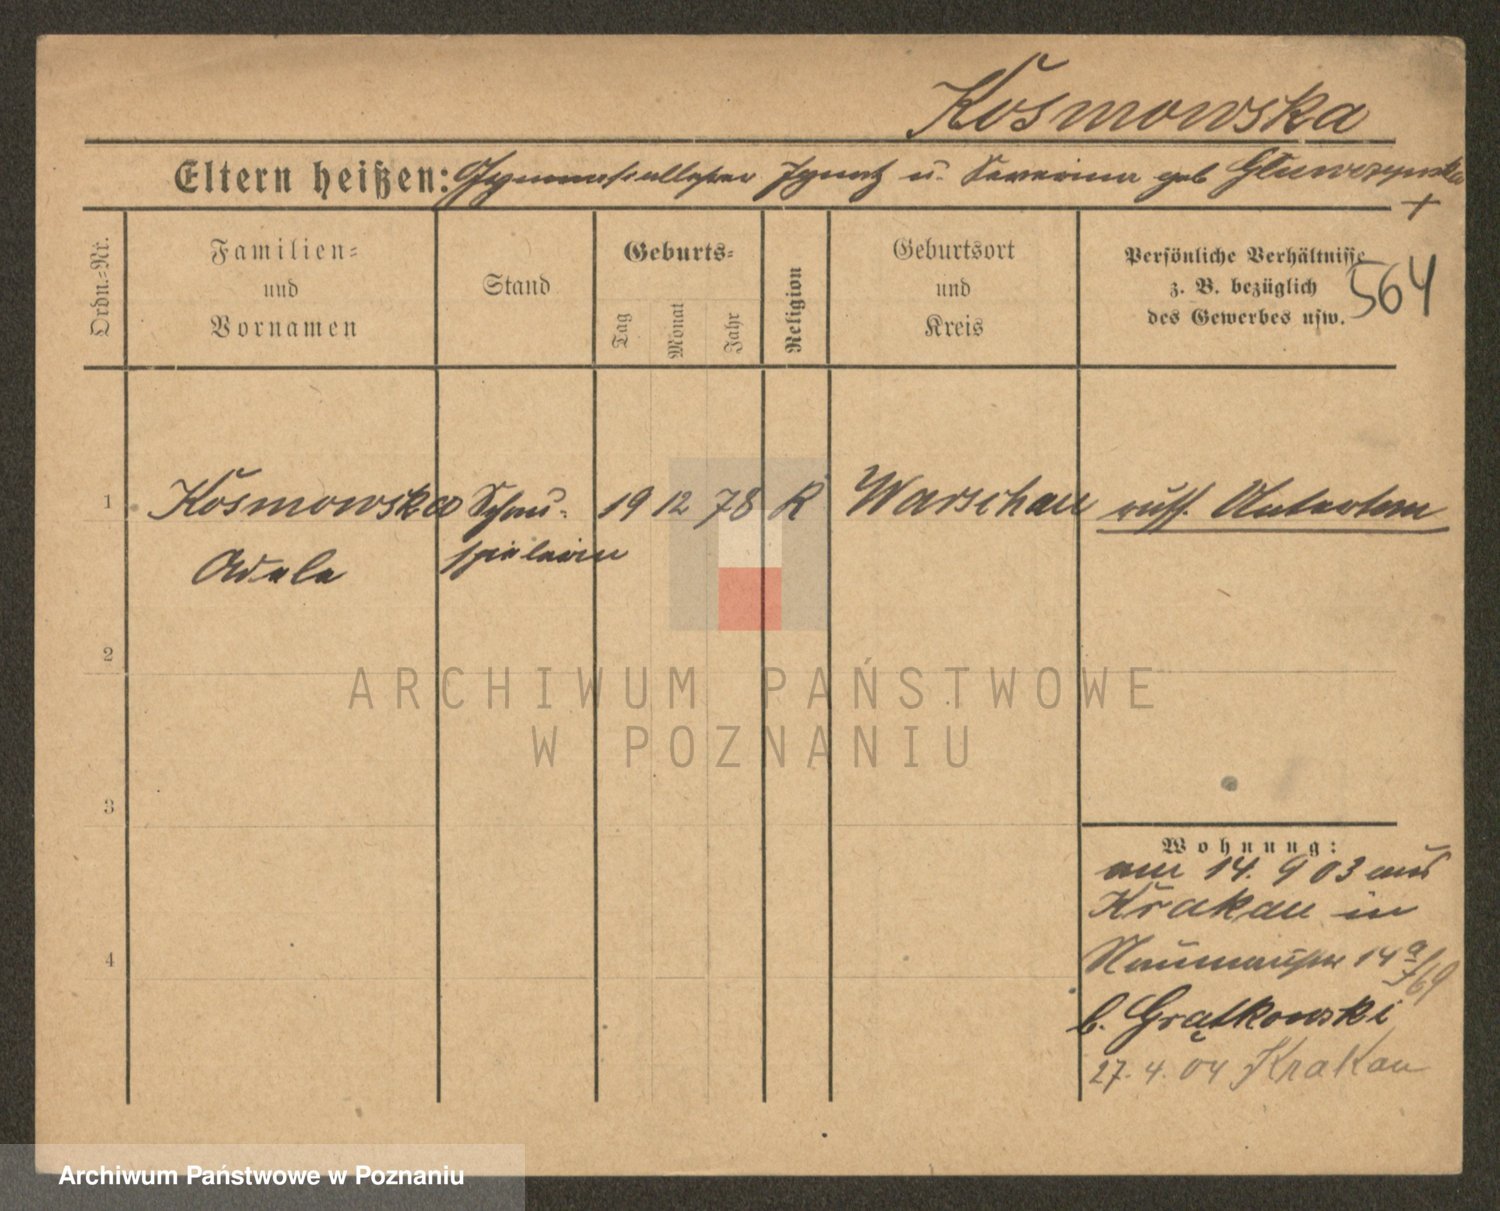 Kosmowska
Eltern heißen: Gymnasiallehrer Ignatz u. Severina geb
+
Ordn.-Nr.
Familien-
und
Vornamen
Stand
Geburts-
Tag
Monat
Jahr
Religion
Geburtsort
und
Kreis
Persönliche Verhältnisse
z. B. bezüglich
des Gewerbes usw.
564
1 Kosmowska Schau- 19 12 78 K Warschau russ. Untertan
Adela spielerin
2
ARCHIWUM PAŃSTWOWE
W POZNANIU
3
Wohnung:
am 14. 9 03 aus
Krakau in
4
Naumannstr 14a/69
b. Grątkowski
27. 4. 04 Krakau
Archiwum Państwowe w Poznaniu